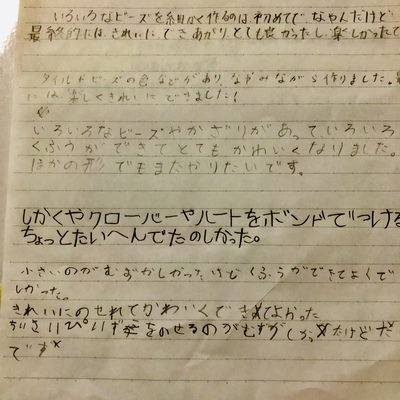 いろいろなビーズを細かく作るのは初めてで、なやんだけど
最終的には、きれいに、できあがり、とても良かったし、楽しかったで
タイルやビーズの色などがあり、なやみながら作りました。
には楽しくきれいにできました!
いろいろなビーズやかざりがあって、いろいろ
くふうができてとてもかわいくなりました。
ほかの形でもまたやりたいです。
しかくやクローバーやハートをボンドでつける
ちょっとたいへんでたのしかった。
小さいのがむずかしかった、けど くふうができてよくで
しかった。
きれいにのせれてかわいくできてよかった
をのせるのがむずかしかったけどだ
です